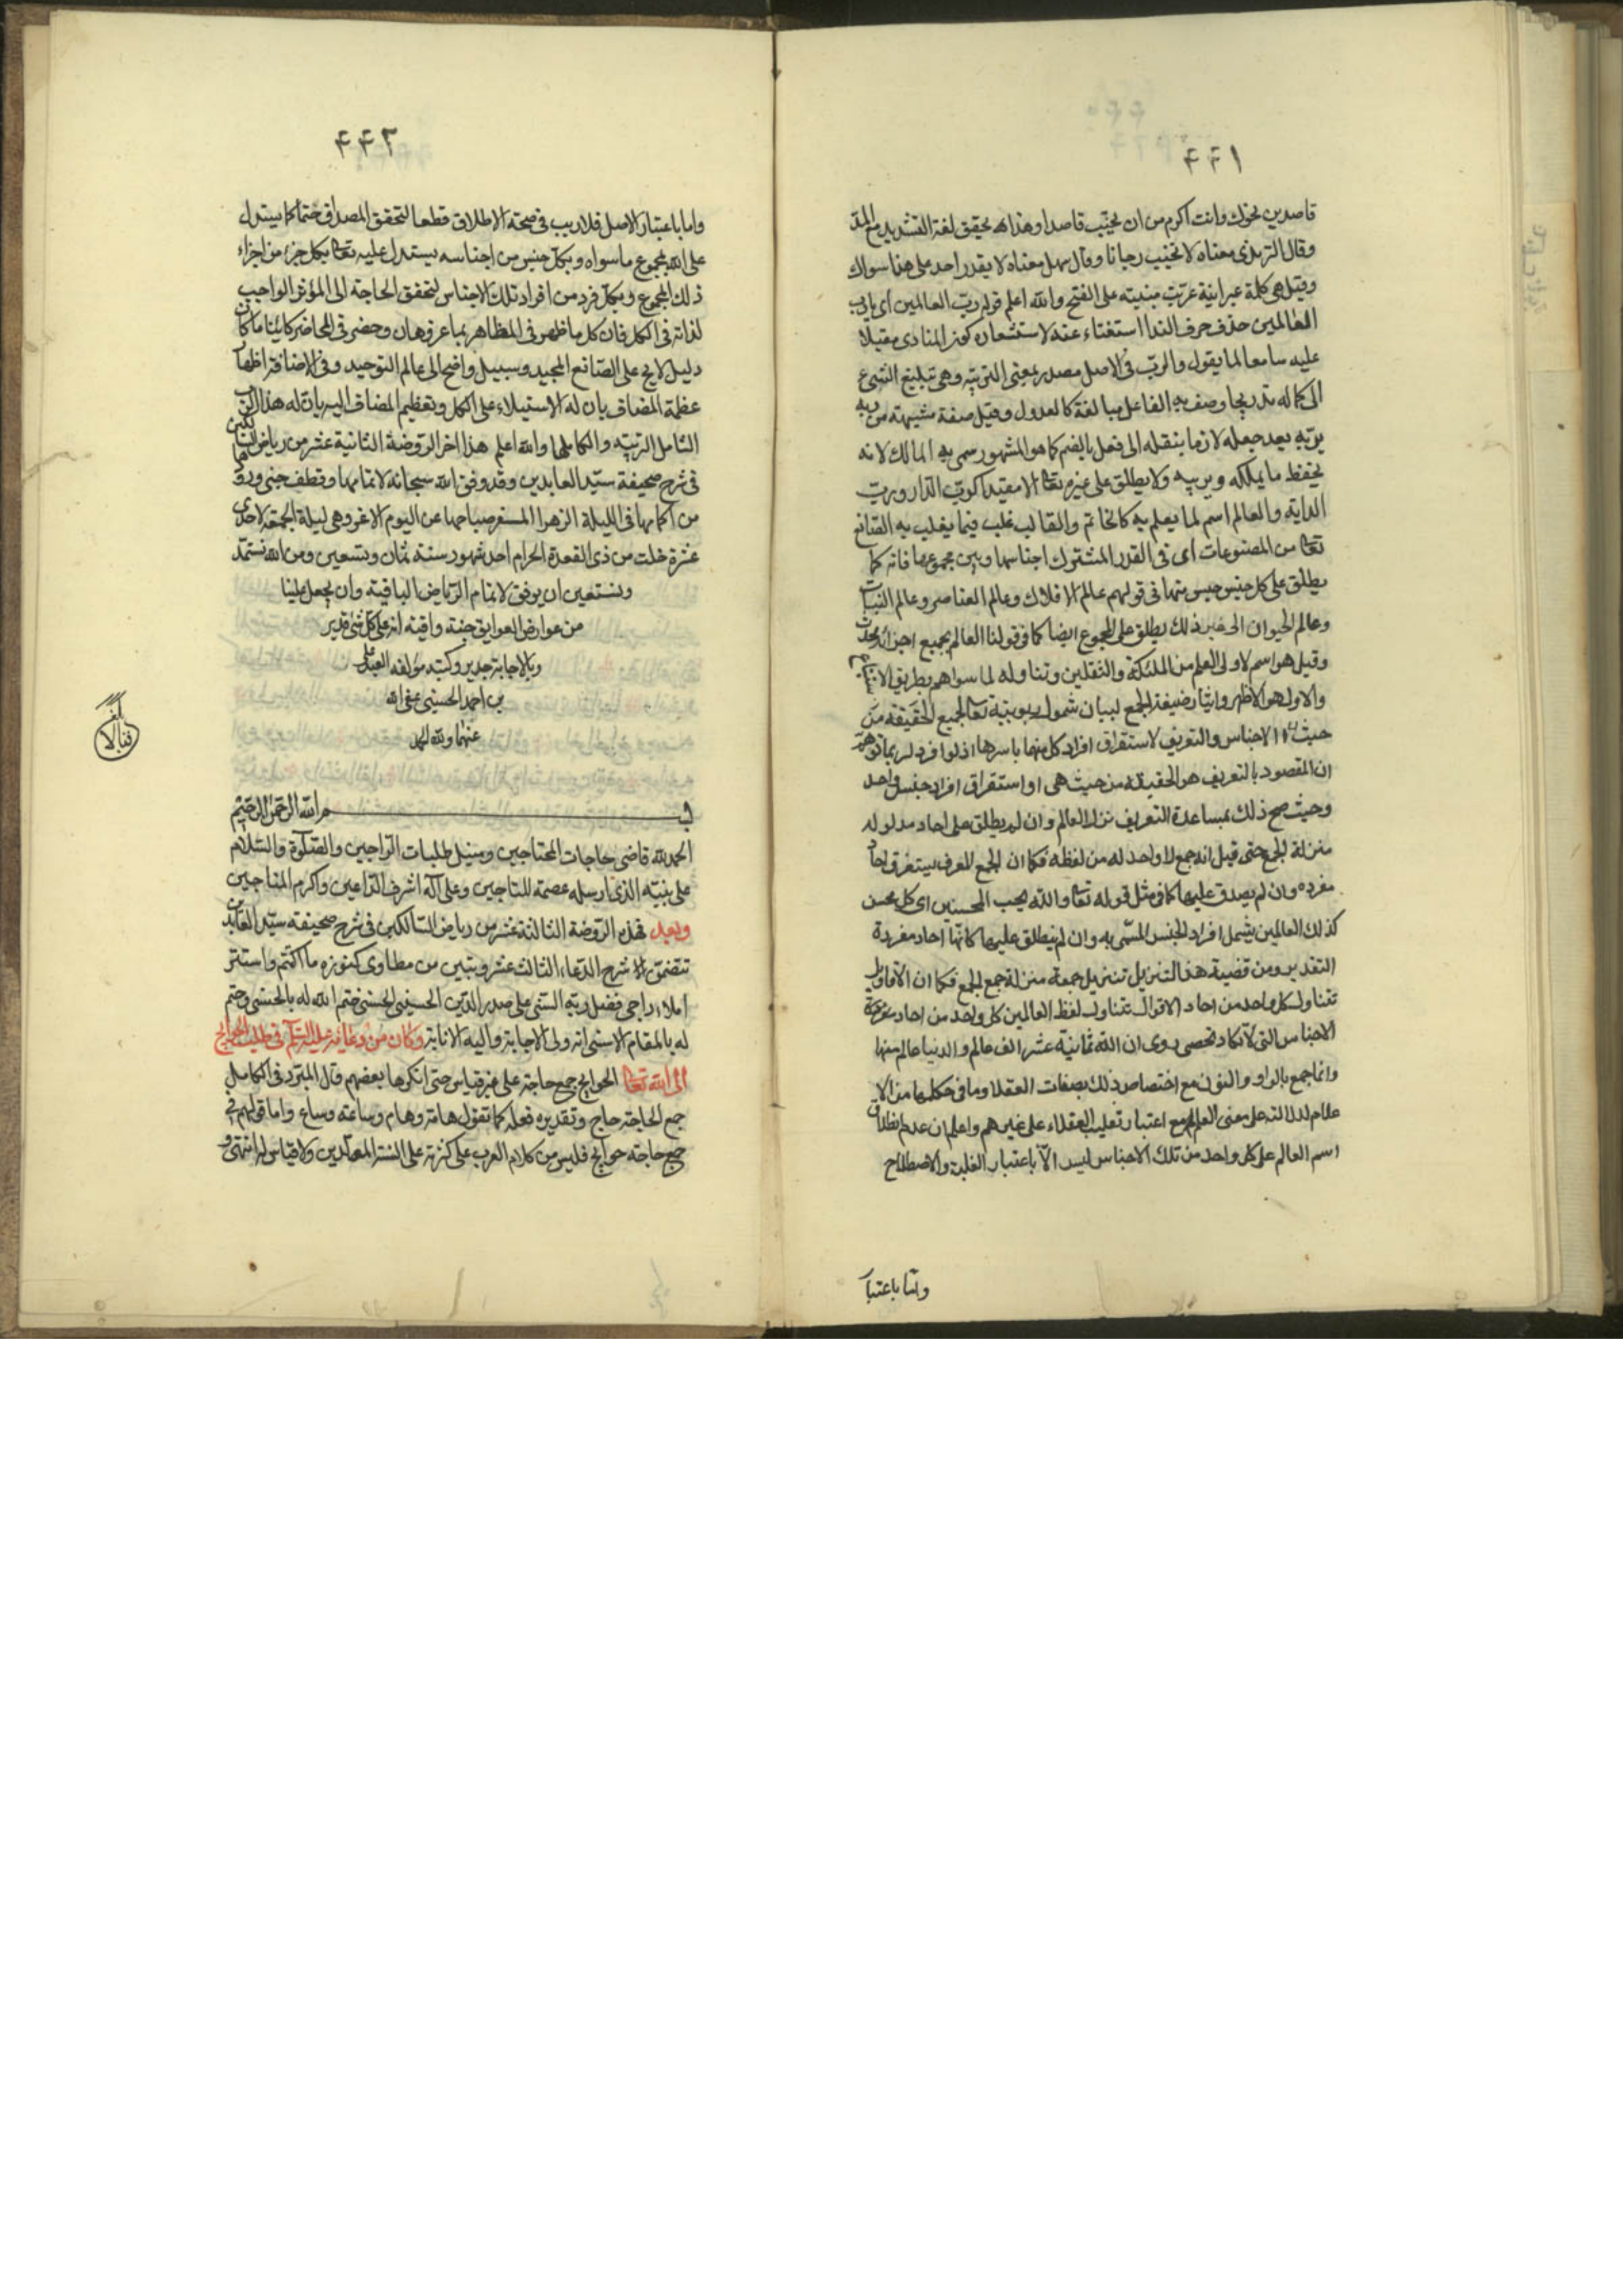 ٤٤١
قاصدين نحوك وانت اكرم من ان يخيب قاصدا وهذا لا يحقق لغة التشديد مع المد
وقال الترمذى معناه لا تخيب رجانا وقال سهل معناه لا يقدر احد على هذا سواك
وقيل هى كلمة عبرانية عربت مبنية على الفتح والله اعلم قوله رب العالمين اى يا رب
العالمين حذف حرف الندا استغناء عنه لاستشعار كون المنادى مقبلا
عليه سامعا لما يقول والرب فى الاصل مصدر بمعنى التربية وهى تبليغ الشىء
الى كماله تدريجا وصف به الفاعل مبالغة كالعدول وقيل صفة مشبهة من ربه
يربه بعد جعله لازما بنقله الى فعل بالضم كما هو المشهور سمى به المالك لانه
يحفظ ما يملكه ويربيه ولا يطلق على غيره تعالى الا مقيدا كرب الدار ورب
الدابة والعالم اسم لما يعلم به كالخاتم والقالب غلب فيما يعلم به الصانع
تعالى من المصنوعات اى فى القدر المشترك اجناسها وبين مجموعها فانه كما
يطلق على كل جنس جنس منها فى قولهم عالم الافلاك وعالم العناصر وعالم النبات
وعالم الحيوان الى غير ذلك يطلق على المجموع ايضا كما فى قولنا العالم بجميع اجزائه محدث
وقيل هو اسم لاولى العلم من الملئكة والثقلين وتناوله لما سواهم بطريق الاستتباع
والاول هو الاظهر وايثار صيغة الجمع لبيان شمول ربوبيته تعالى لجميع الحقيقة من
حيث الاجناس والتعريف لاستغراق افراد كل منها باسرها اذ لو افرد لربما توهم
ان المقصود بالتعريف هو الحقيقة من حيث هى او استغراق افراد جنس واحد
وحيث صح ذلك بمساعدة التعريف نزل العالم وان لم يطلق على احاد مدلوله
منزلة الجمع حتى قيل انه جمع لا واحد له من لفظه فكما ان الجمع المعرف يستغرق احاد
مفرده وان لم يصدق عليها كما فى مثل قوله تعالى والله يحب المحسنين اى كل محسن
كذلك العالمين يشمل افراد الجنس المسمى به وان لم ينطلق عليها كانها احاد مفردة
التقديرو من قضية هذا التنزيل تنزيل جمعه منزلة جمع الجمع فكما ان الاقاويل
تتناول كل واحد من احاد الاقوال تتناول لفظ العالمين كل واحد من احاد
الاجناس التى لا تكاد تحصى روى ان الله ثمانية عشر الف عالم والدنيا عالم منها
وانما جمع بالواو والنون مع اختصاص ذلك بصفات العقلا وما فى حكمها من الا
علام لدلالته على معنى العلم مع اعتبار تغليب العقلاء على غيرهم واعلم ان عدم انطلاق
اسم العالم على كل واحد من تلك الاجناس ليس الا باعتبار الغلبة والاصطلاح
واما باعتبار
٤٤٢
واما باعتبار الاصل فلا ريب فى صحة الاطلاق قطعا لتحقق المصداق حتما كما يستدل
على الله بمجموع ما سواه وبكل جنس من اجناسه يستدل عليه تعالى بكل جزء من اجزاء
ذلك المجموع وبكل فرد من افراد تلك الاجناس لتحقق الحاجة الى المؤثر الواجب
لذاته فى الكل فان كل ما ظهر فى المظاهر مما عز وهان وحضر فى المحاضر كائنا ما كان
دليل لايح على الصانع المجيد وسبيل واضح الى عالم التوحيد وفى الاضافة اظهار
عظمة المضاف بان له الاستيلاء على الكل وتعظيم المضاف اليه بان له هذا الرب
الشامل الربيه والكاملها والله اعلم هذا اخر الروضة الثانية عشر من رياض السالكين
فى شرح صحيفة سيد العابدين وقد وفق الله سبحانه لاتمامها وقطف جنى ورودها
من اكمامها فى الليلة الزهرا المسفر صباحها عن اليوم الاغر وهى ليلة الجمعة لاحدى
عشرة خلت من ذى القعدة الحرام احد شهور سنة ثمان وتسعين ومن الله نستمد
ونستعين ان يوفق لاتمام الرياض الباقية وان يجعل علينا
من عوارض العوايق جنة واقية انه على كل شئ قدير
وبالاجابة جدير وكتبه مؤلفه العبد على
بن احمد الحسينى عفى الله
عنهما ولله الحمد
بسم الله الرحمن الرحيم
الحمد لله قاضى حاجات المحتاجين ومنيل طلبات الراجين والصلوة والسلام
على نبيه الذى ارسله عصمة للناجين وعلى آله اشرف الداعين واكرم المناجين
وبعد فهذه الروضة الثالثة عشر من رياض السالكين فى شرح صحيفة سيد العابدين
تتضمن شرح الدعاء الثالث عشر وتبين من مطاوى كنوزه ما اكتتم واستتر
املاء راجى فضل ربه السنى على صدر الدين الحسينى الحسنى ختم الله له بالحسنى وحتم
له بالمقام الاسنى انه ولى الاجابة واليه الانابة وكان من دعائه عليه السلم فى طلب الحوائج
الى الله تعالى الحوايج جمع حاجة على غير قياس حتى انكرها بعضهم قال المبرد فى الكامل
جمع الحاجة حاج وتقديره فعله كما تقول هامة وهام وساعة وساع واما قولهم فى
جمع حاجة حوايج فليس من كلام العرب على كثرته على السنة المولدين ولا قياس له انتهى